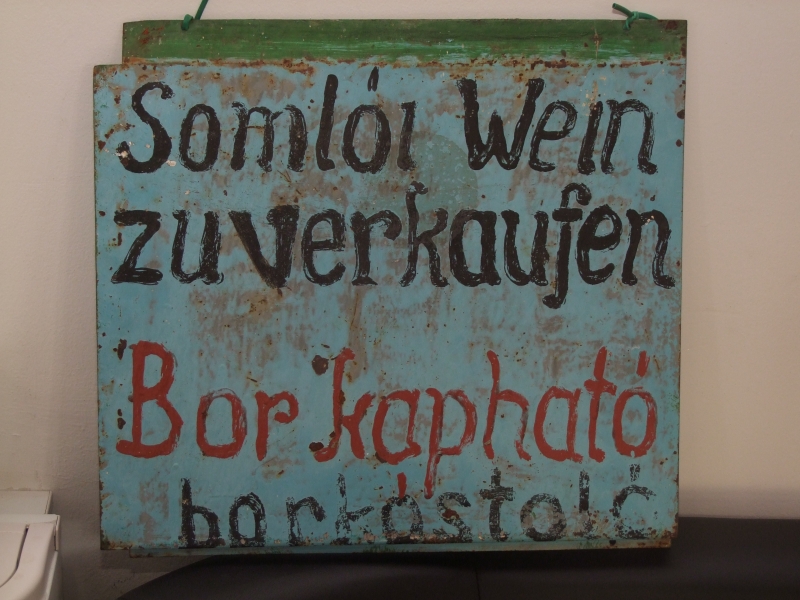 Somlói Wein
zu verkaufen
Bor kapható
borkóstoló